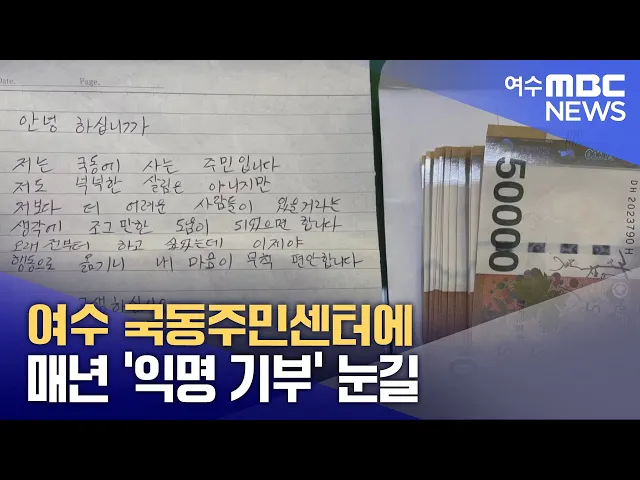 Date. Page.
안녕 하십니까
저는 국동에 사는 주민입니다
저도 넉넉한 살림은 아니지만
저보다 더 어려운 사람들이 있을거라는
생각에 조그만한 도움이 되었으면 합니다
오래 전부터 하고 싶었는데 이제야
행동으로 옮기니 내 마음이 무척 편안합니다
여수 MBC
NEWS
50000
DH 2023790 H
여수 국동주민센터에
매년 '익명 기부' 눈길